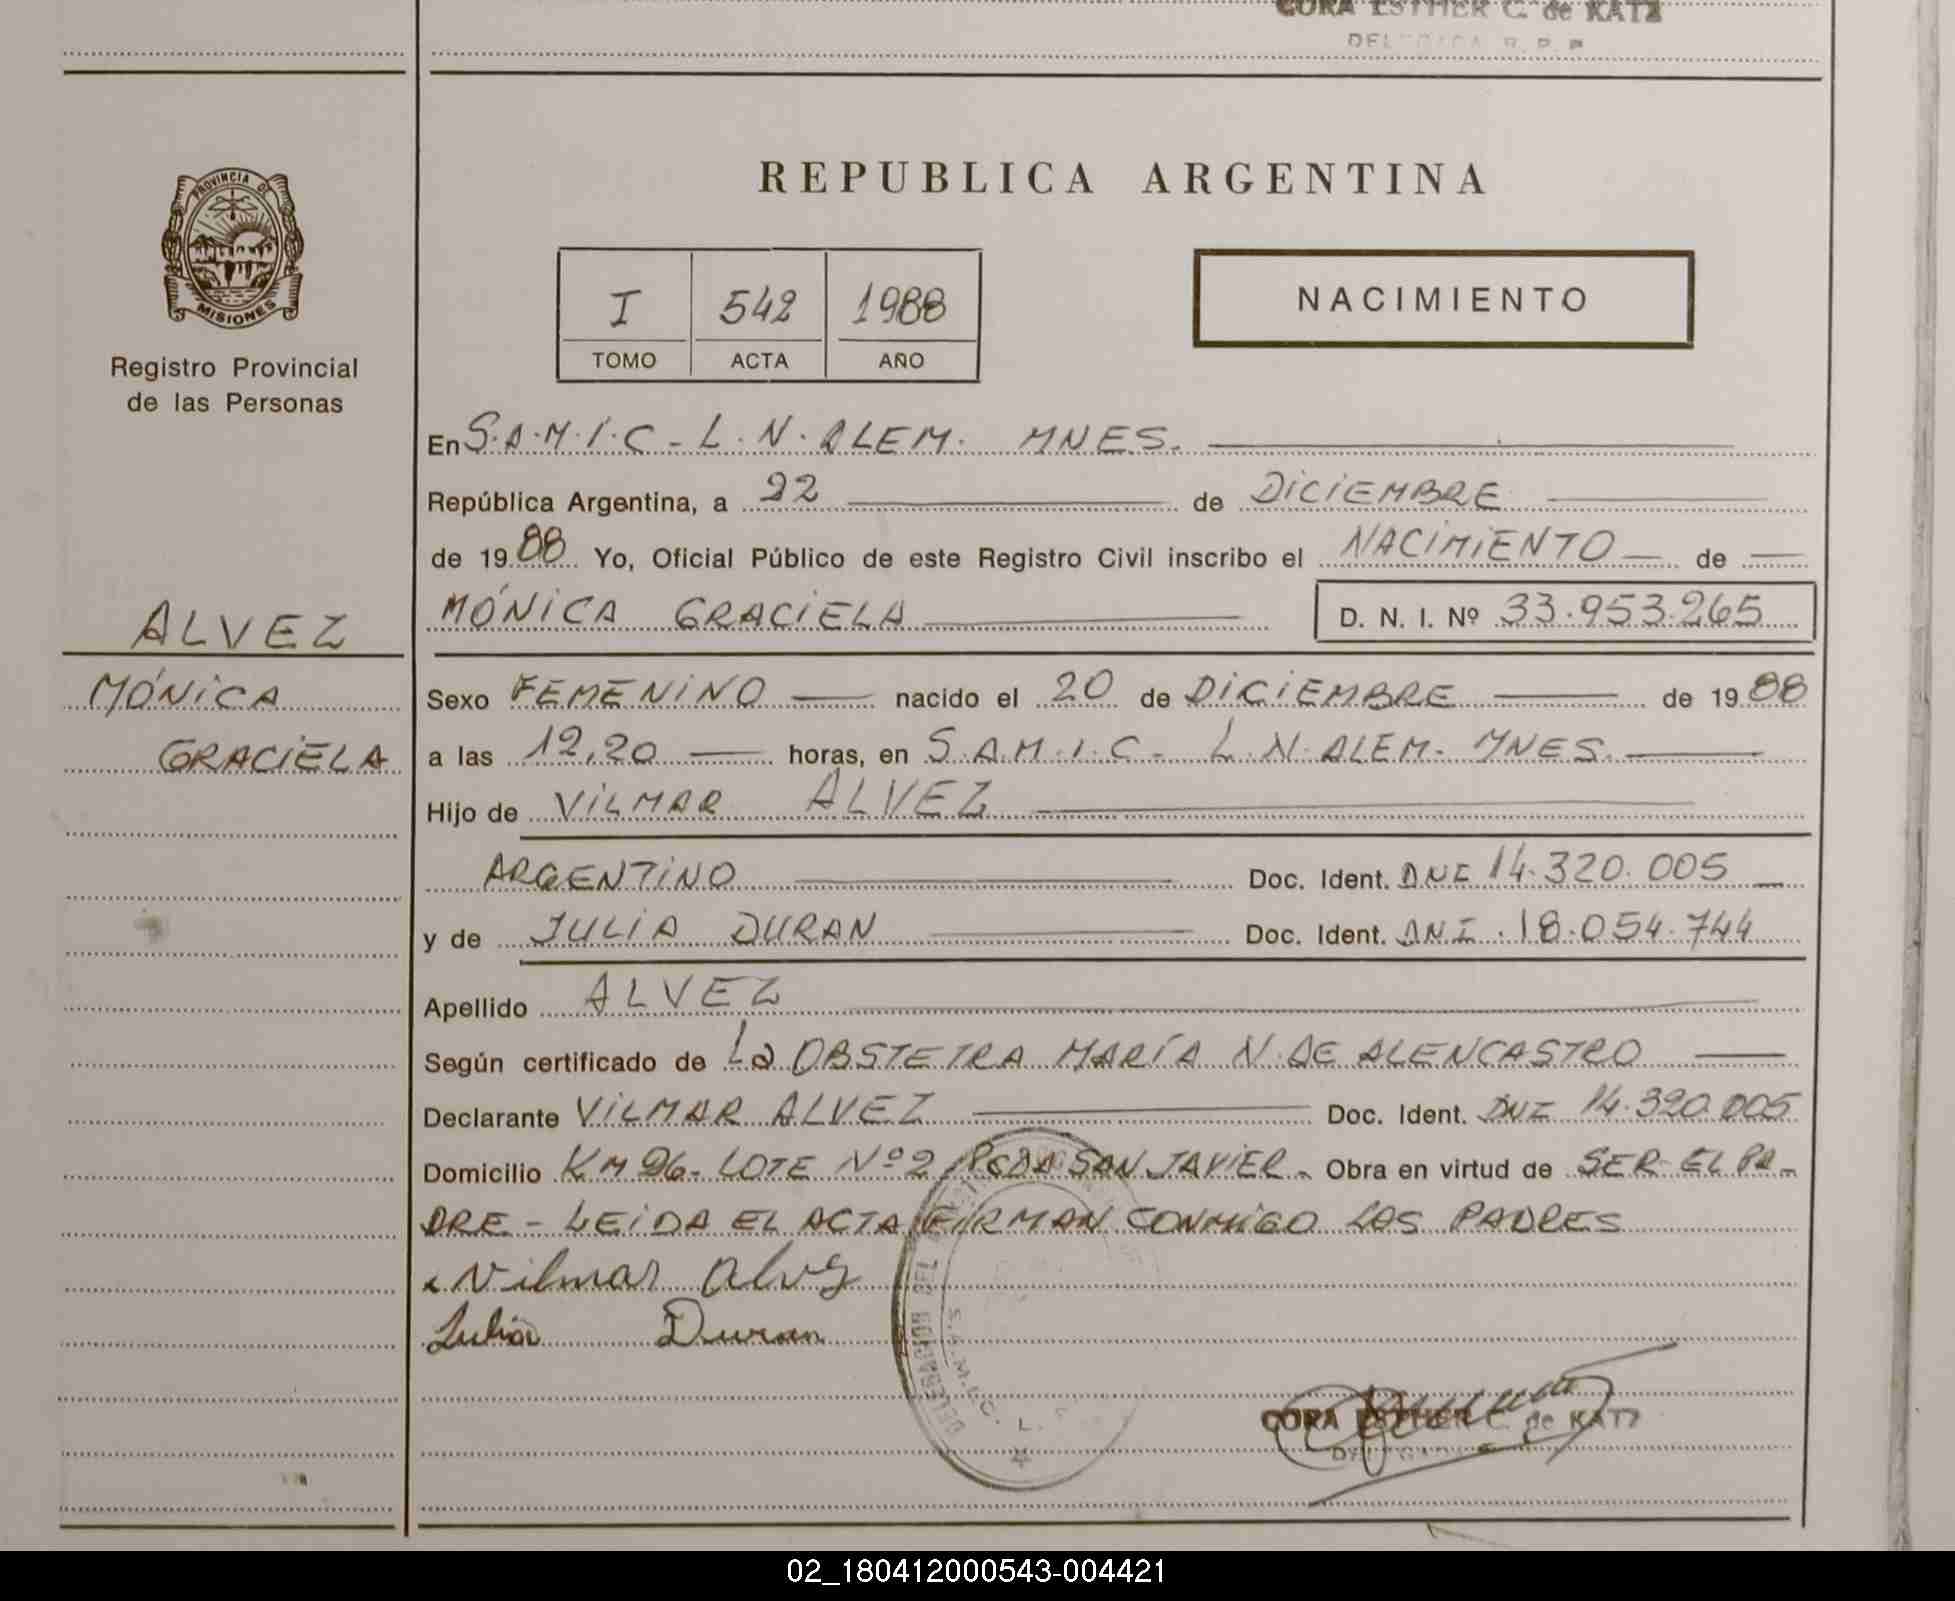 CORA ESTHER C. de KATZ
DELEGADA R. P. P.
PROVINCIA DE
MISIONES
Registro Provincial
de las Personas
ALVEZ
MÓNICA
GRACIELA
REPUBLICA ARGENTINA
I 542 1988
TOMO ACTA AÑO
NACIMIENTO
En S.A.M.I.C - L.N. ALEM. MNES.
República Argentina, a 22 de DICIEMBRE
de 1988 Yo, Oficial Público de este Registro Civil inscribo el NACIMIENTO de
MÓNICA GRACIELA D. N. I. Nº 33.953.265
Sexo FEMENINO nacido el 20 de DICIEMBRE de 1988
a las 12,20 horas, en S.A.M.I.C - L.N. ALEM. MNES.
Hijo de VILMAR ALVEZ
ARGENTINO Doc. Ident. DNI 14.320.005
y de JULIA DURAN Doc. Ident. DNI. 18.054.744
Apellido ALVEZ
Según certificado de La OBSTETRA MARÍA N. DE ALENCASTRO
Declarante VILMAR ALVEZ Doc. Ident. DNI 14.320.005
Domicilio KM 26 - LOTE Nº 2 PCDA SAN JAVIER - Obra en virtud de SER EL PA-
DRE - LEIDA EL ACTA FIRMAN CONMIGO LOS PADRES
x Vilmar Alvz
Julia Duran
S.A.M.I.C. L.
CORA ESTHER C. de KATZ
DELEGADA
02_180412000543-004421